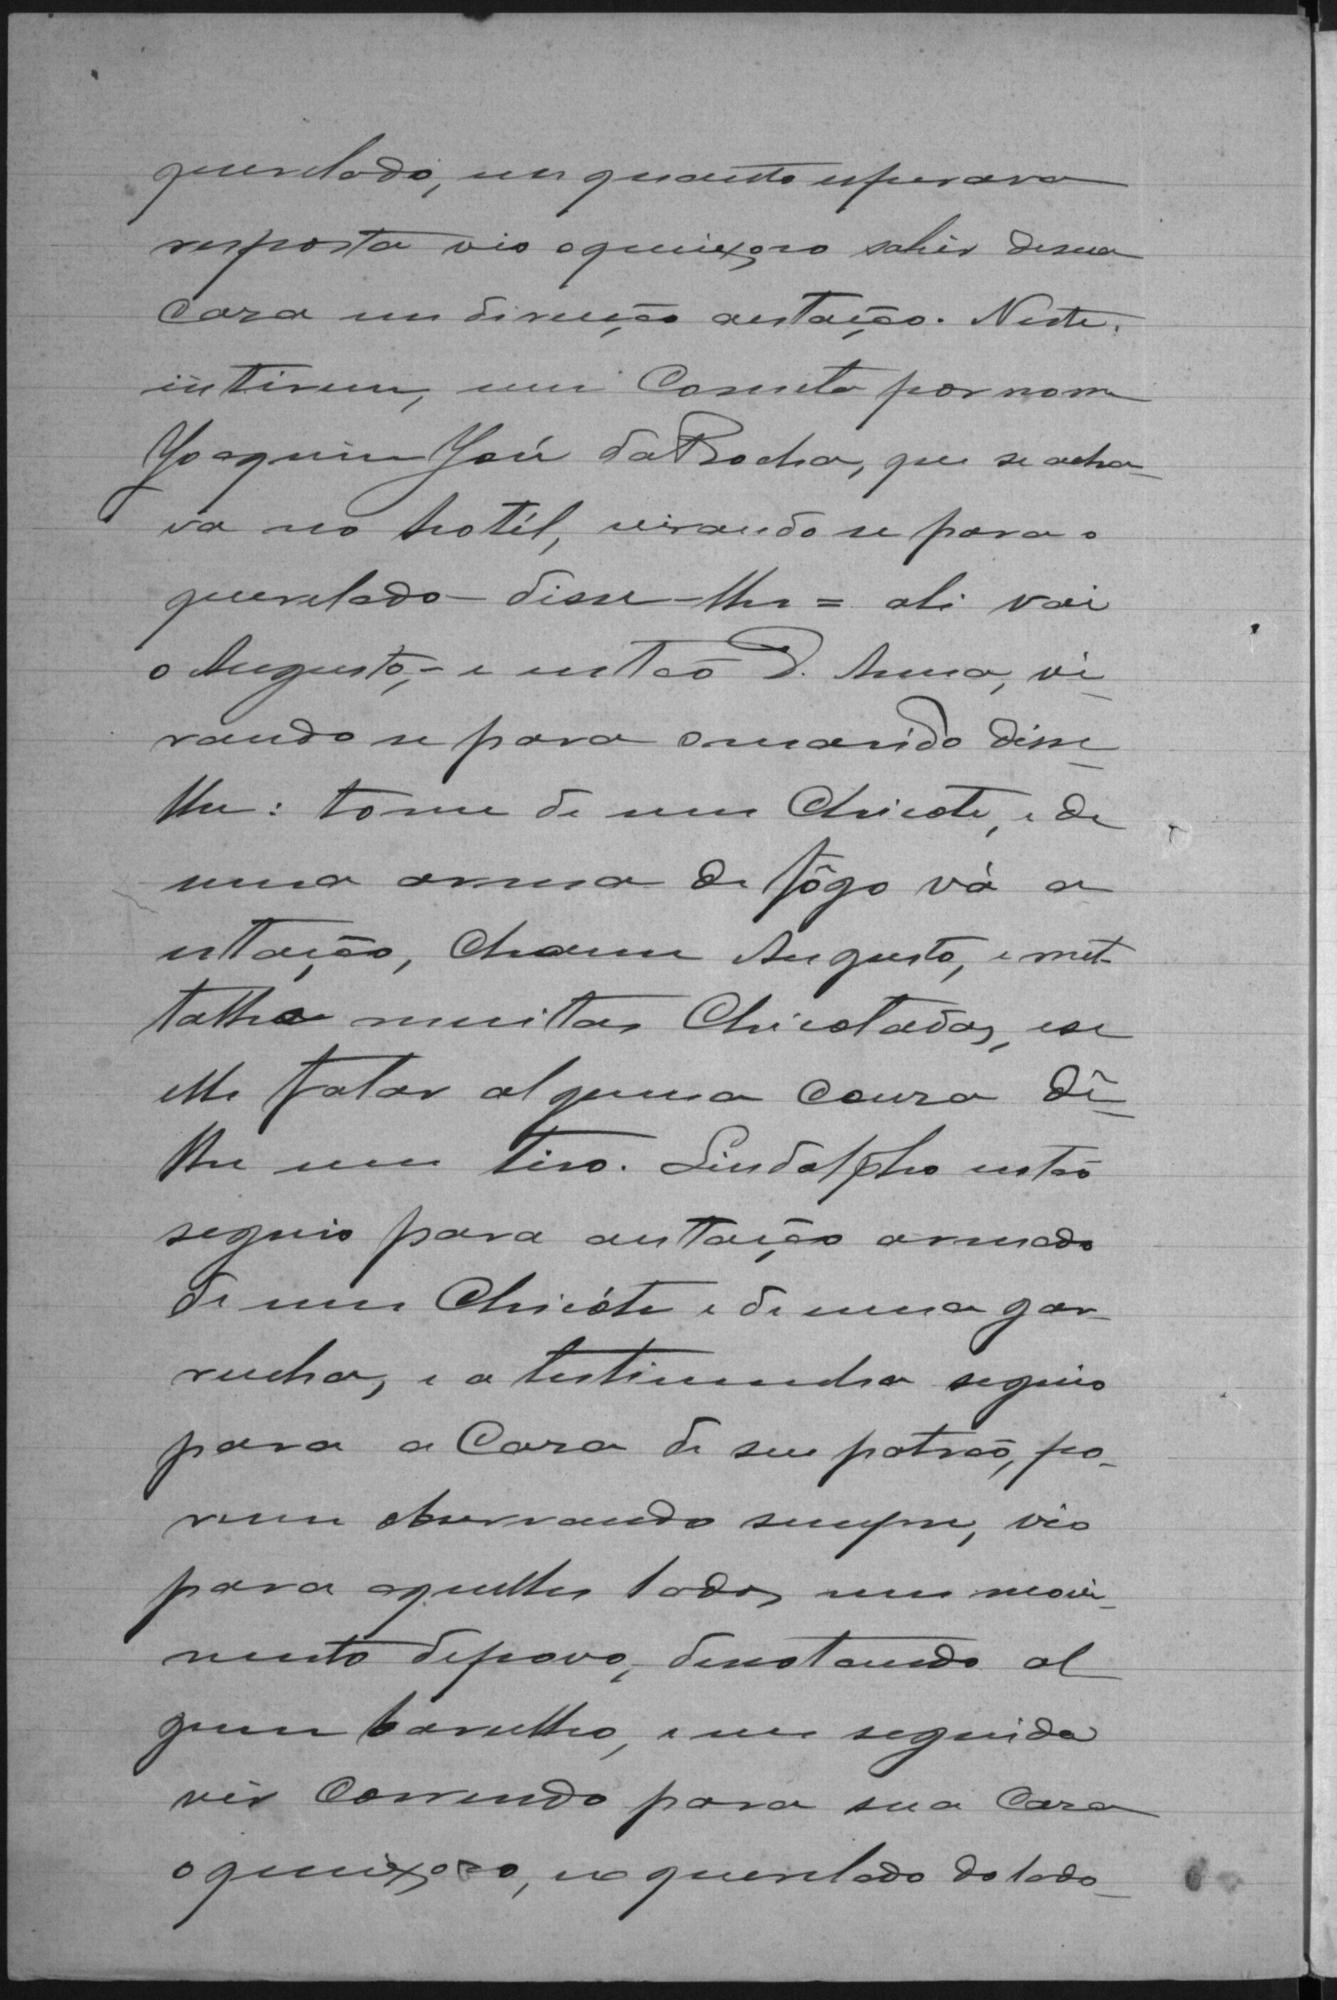 querelado, em quanto esperava
resposta vio o queixoso sahir de sua
casa em direcção a estação. Neste
interim, um Cometa por nome
Joaquim José da Rocha, que se acha-
va no hotél, virando se para o
querelado disse-lhe = ali vai
o Augusto, = e então D. Anna, vi-
rando se para o marido disse-
lhe: tome de um Chicote, e de
uma arma de fôgo vá a
estação, chame Augusto, e met-
ta lhe muitas Chicotadas, e se
elle falar alguma cousa dê-
lhe um tiro. Lindolpho então
seguio para a estação armado
de um Chicóte e de uma gar-
rucha, e a testimunha seguio
para a Casa de seu patrão, po-
rem observando sempre, vio
para aquelles lados um movi-
mento de povo, denotando al
gum barulho, e em seguida
vir Correndo para sua Casa
o queixoso, e o querelado do lado